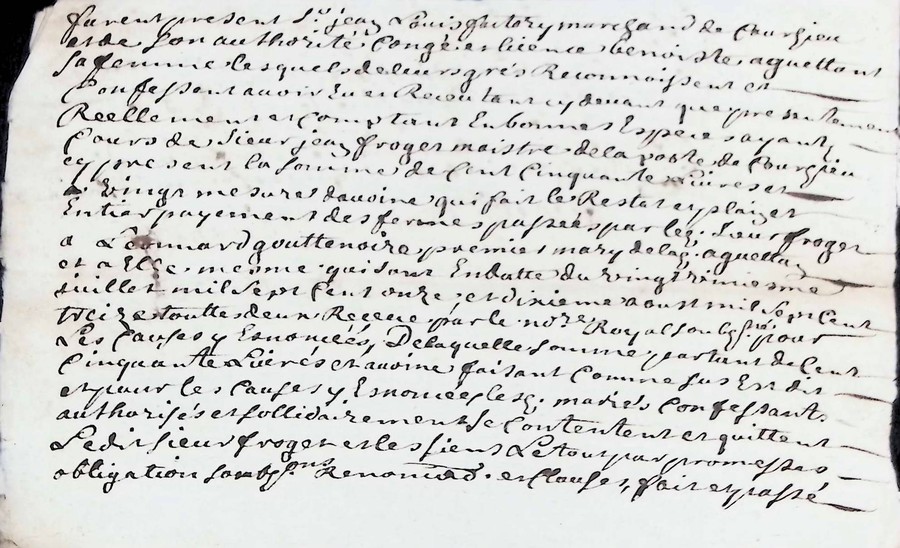 furent present Sr. jean Louis factory marchand de Courzieu
et de son authorité Congé et licence benoiste aguettant
sa femme lesquels de leurs grés Reconnoissent et
Confessent avoir Eu et Receu tant cy devant que presentement
Reellement et Comptant En bonnes Espece ayant
Cours de Sieur jean froger maistre de la poste de Courzieu
cy present la Somme de Cent Cinquante Livres et
Vingt mesures davoine qui fait le Restat et plain et
Entier payement des ferme passées par led. Sieur froger
a Leonnard gouttenoire premier mary de lad. aguettant
et a Elle mesme qui sont En datte du vingt
juillet mil Sept Cent onze et dixieme aoust mil Sept Cent
treize touttes deux Receue par le nore Royal soubsigné pour
Les Causes y Esnoncées, De laquelle somme partant de Cent
Cinquante Livres et avoine faisant Comme sus Est dit
et pour les Causes y Esnoncées lesd. mariés Confessant
authorisés et sollidairement se Contentent et quittent
Ledit sieur froger et les siens Le tout par promesses
obligation soubsons Renonciaõ. et Clauses, fait et passé